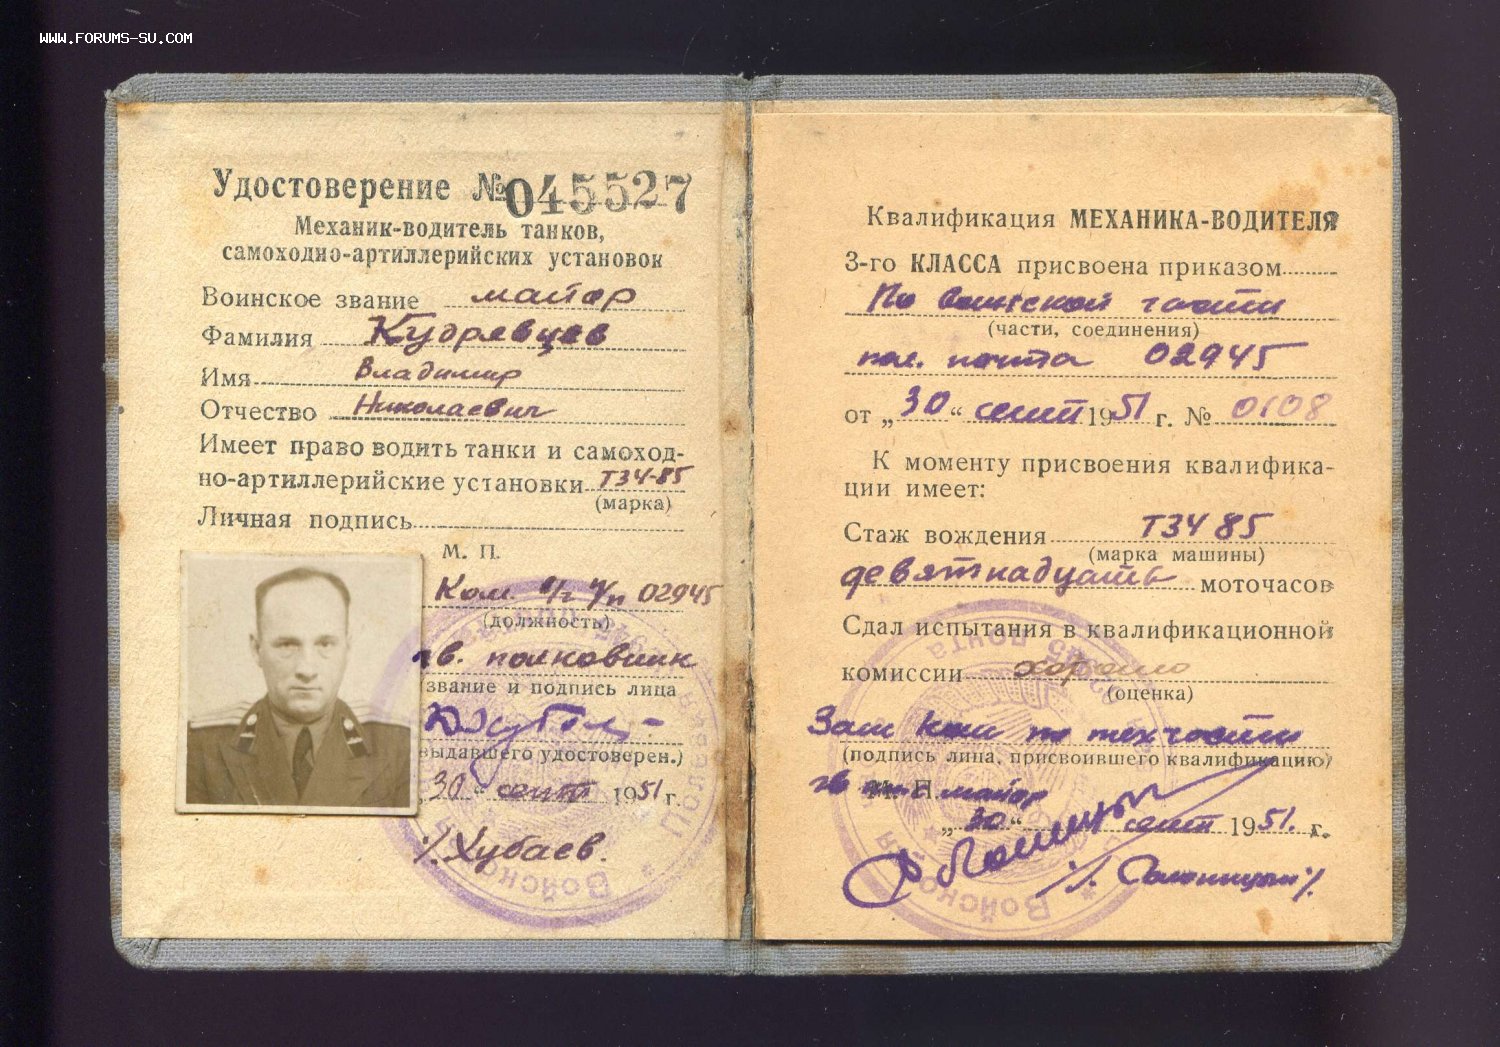 WWW.FORUMS-SU.COM
Удостоверение № 045527
Механик-водитель танков,
самоходно-артиллерийских установок
Воинское звание майор
Фамилия Кудрявцев
Имя Владимир
Отчество Николаевич
Имеет право водить танки и самоход-
но-артиллерийские установки Т34-85
(марка)
Личная подпись
М. П.
Ком в/ч п/п 02945
(должность)
гв. полковник
(звание и подпись лица
выдавшего удостоверен.)
„30“ сент 1951 г.
/Хубаев.
Квалификация МЕХАНИКА-ВОДИТЕЛЯ
3-го КЛАССА присвоена приказом
По воинской части
(части, соединения)
пол. почта 02945
от „30“ сент 1951 г. № 0108
К моменту присвоения квалифика-
ции имеет:
Стаж вождения Т34 85
(марка машины)
девятнадцать моточасов
Сдал испытания в квалификационной
комиссии хорошо
(оценка)
Зам ком по техчасти
(подпись лица, присвоившего квалификацию)
гв М. П. майор
„30“ сент 1951. г.